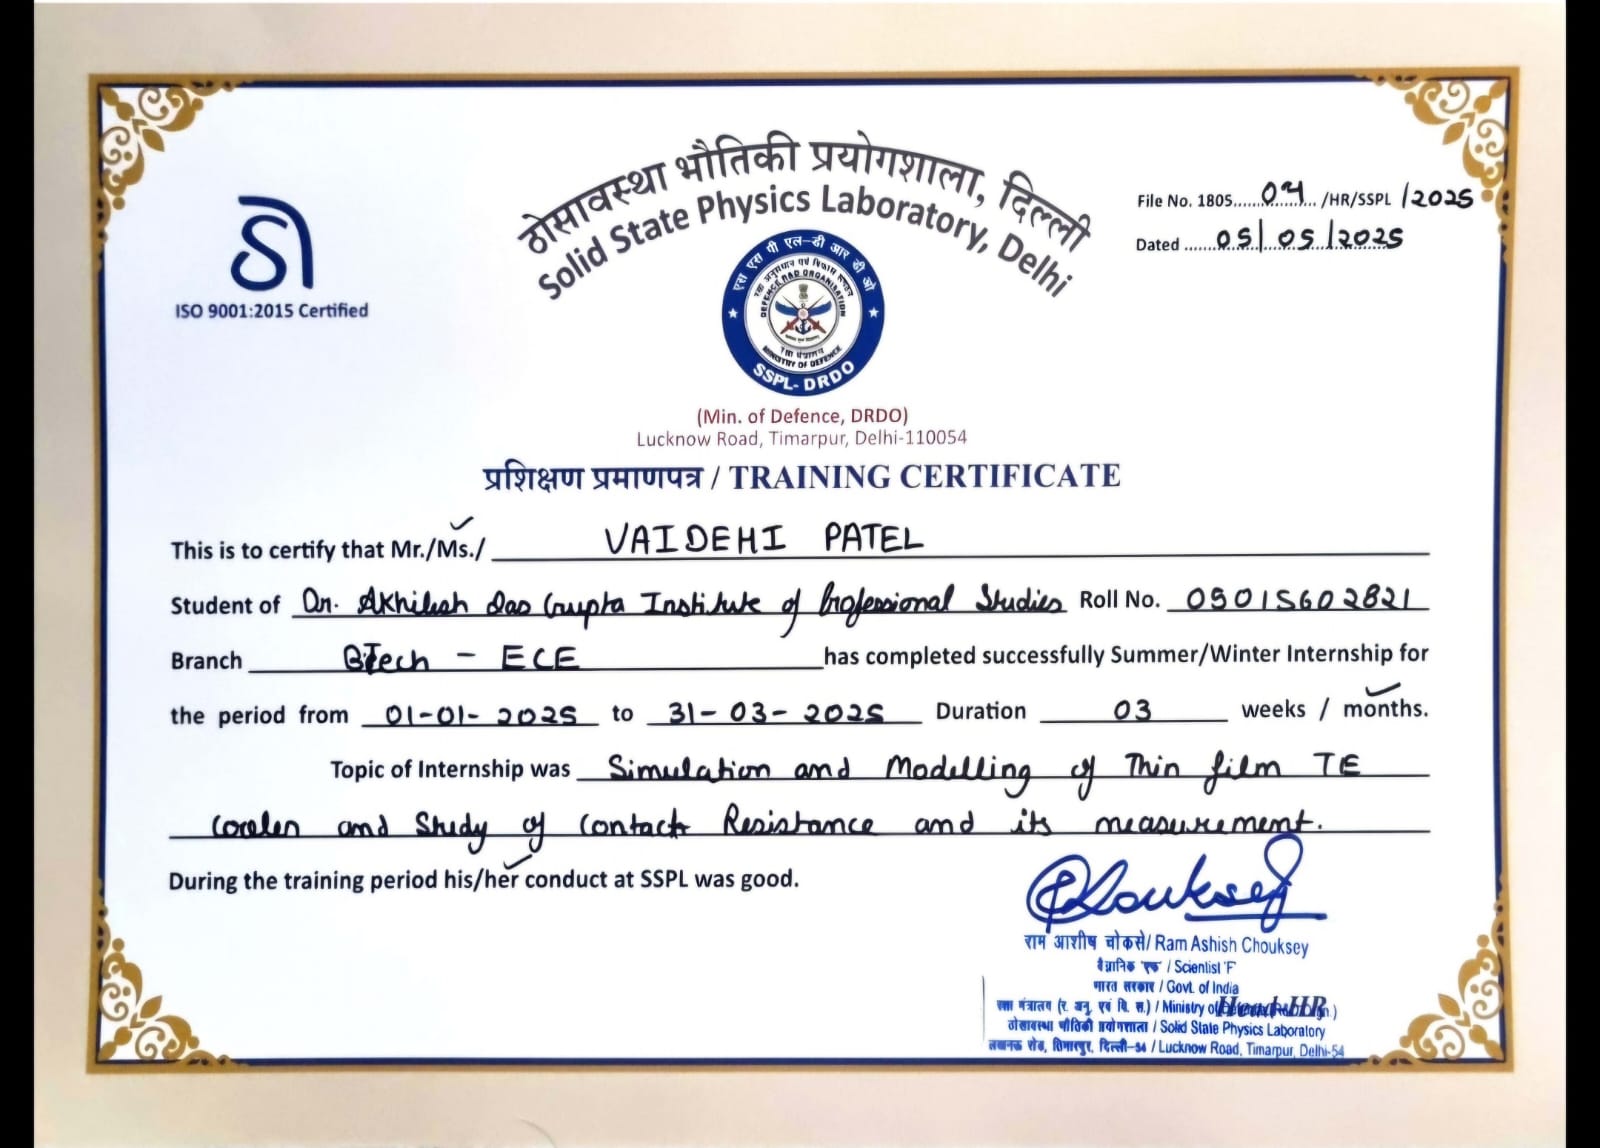 ठोसावस्था भौतिकी प्रयोगशाला, दिल्ली
Solid State Physics Laboratory, Delhi
File No. 1805......04....../HR/SSPL /2025
Dated ......05/05/2025
ISO 9001:2015 Certified
एस एस पी एल-डी आर डी ओ
DEFENCE R&D ORGANISATION
रक्षा मंत्रालय
MINISTRY OF DEFENCE
SSPL-DRDO
(Min. of Defence, DRDO)
Lucknow Road, Timarpur, Delhi-110054
प्रशिक्षण प्रमाणपत्र / TRAINING CERTIFICATE
This is to certify that Mr./Ms./ VAIDEHI PATEL
Student of Dr. Akhilesh Das Gupta Institute of Professional Studies Roll No. 05015602821
Branch BTech - ECE has completed successfully Summer/Winter Internship for
the period from 01-01-2025 to 31-03-2025 Duration 03 weeks / months.
Topic of Internship was Simulation and Modelling of Thin film TE
and Study of Contact Resistance and its measurement.
During the training period his/her conduct at SSPL was good.
राम आशीष चोकसे/ Ram Ashish Chouksey
वैज्ञानिक 'एफ' / Scientist 'F'
भारत सरकार / Govt. of India
रक्षा मंत्रालय (र. अनु. एवं वि. स.) / Ministry of Head-HR
ठोसावस्था भौतिकी प्रयोगशाला / Solid State Physics Laboratory
लखनऊ रोड, तिमारपुर, दिल्ली-54 / Lucknow Road, Timarpur, Delhi-54